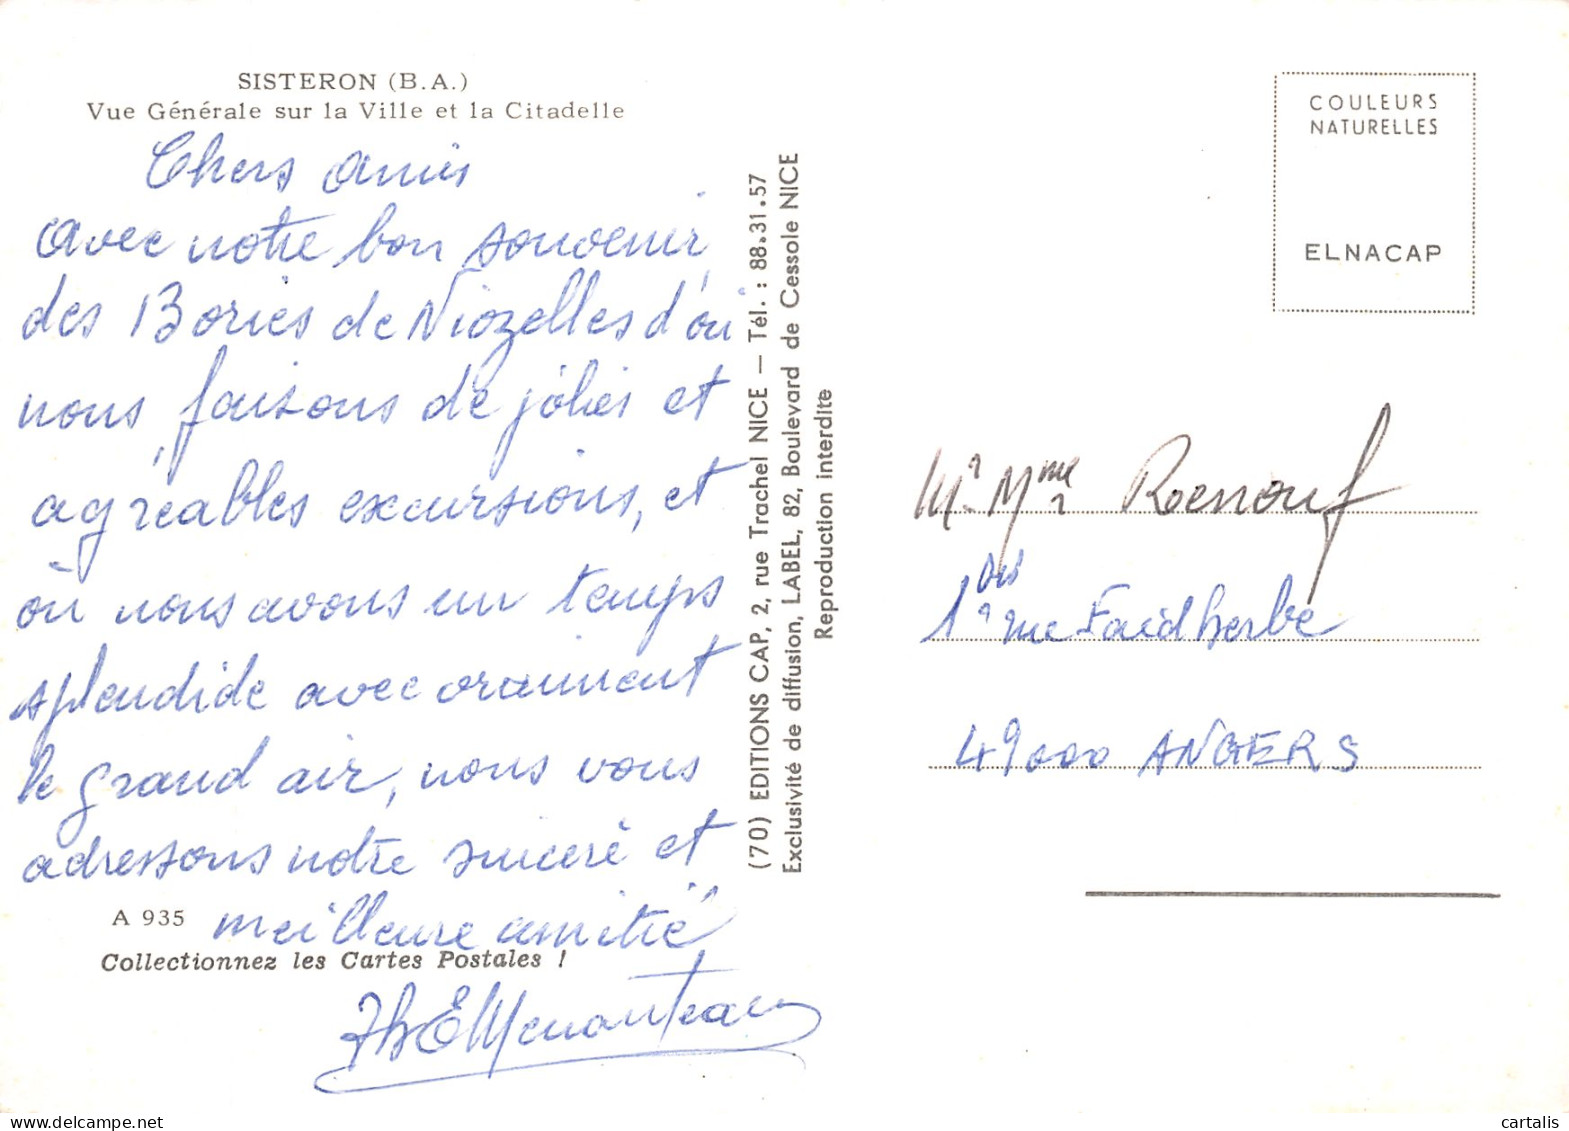 SISTERON (B.A.)
Vue Générale sur la Ville et la Citadelle
Chers Amis
avec notre bon souvenir
des Bories de Niozelles d'où
nous faisons de jolies et
agréables excursions, et
où nous avons un temps
splendide avec vraiment
le grand air, nous vous
adressons notre sincère et
meilleure amitié
A 935
Collectionnez les Cartes Postales !
(70) EDITIONS CAP, 2, rue Trachel NICE — Tél. : 88.31.57
Exclusivité de diffusion, LABEL, 82, Boulevard de Cessole NICE
Reproduction interdite
COULEURS
NATURELLES
ELNACAP
M. Mme Renouf
1 bis rue Faidherbe
49000 ANGERS
cartalis.com